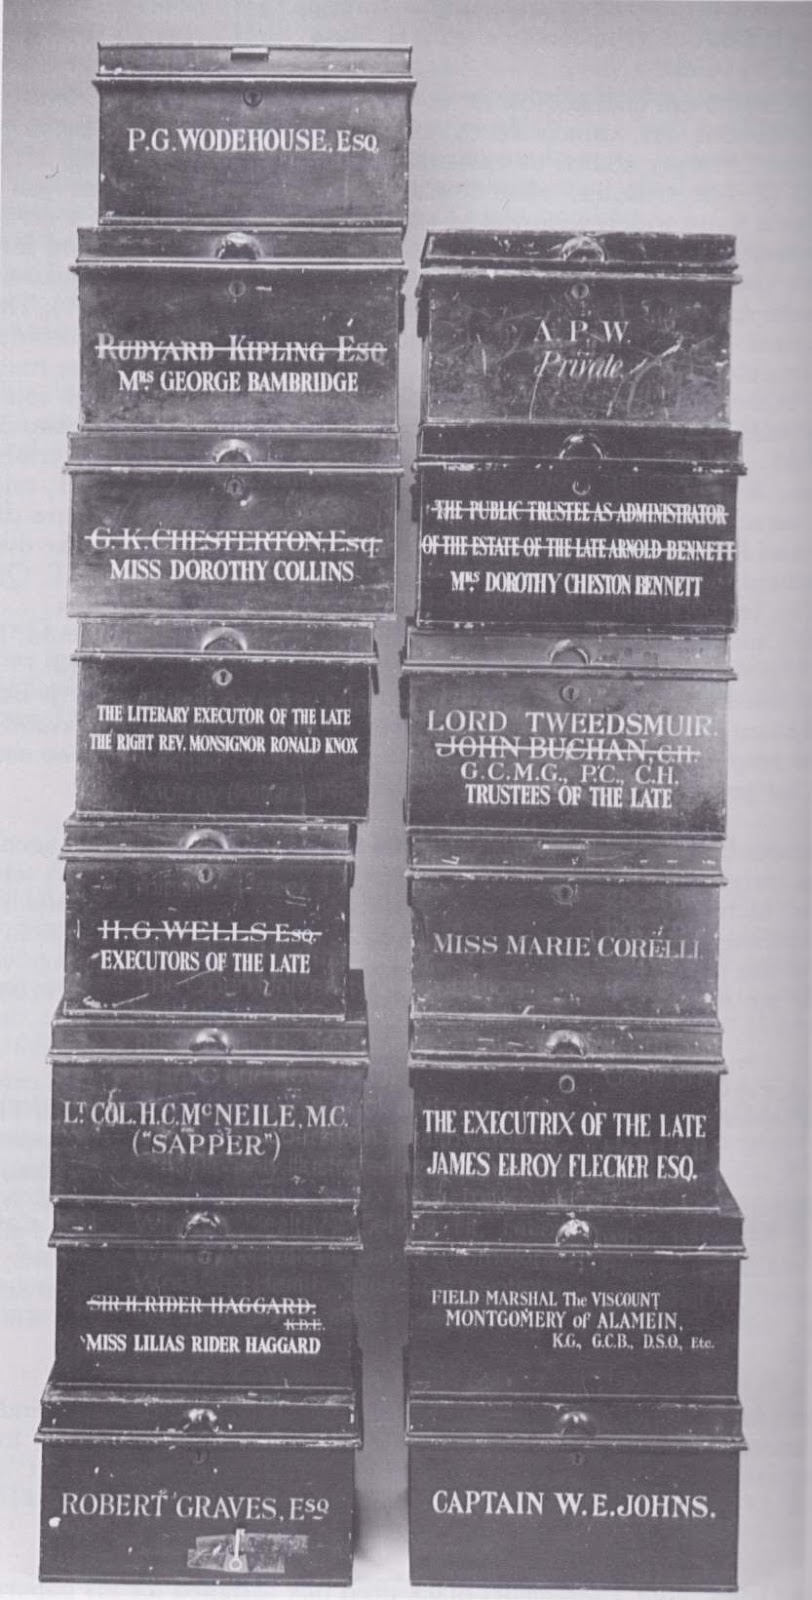 P.G. WODEHOUSE, ESQ.
RUDYARD KIPLING ESQ
MRS. GEORGE BAMBRIDGE
G. K. CHESTERTON, ESQ.
MISS DOROTHY COLLINS
THE LITERARY EXECUTOR OF THE LATE
THE RIGHT REV. MONSIGNOR RONALD KNOX
H.G. WELLS ESQ.
EXECUTORS OF THE LATE
LT COL. H.C. McNEILE, M.C.
("SAPPER")
SIR H. RIDER HAGGARD.
K.B.E.
MISS LILIAS RIDER HAGGARD
ROBERT GRAVES, ESQ
A. P. W.
Private
THE PUBLIC TRUSTEE AS ADMINISTRATOR
OF THE ESTATE OF THE LATE ARNOLD BENNETT
MRS. DOROTHY CHESTON BENNETT
LORD TWEEDSMUIR.
JOHN BUCHAN, C.H.
G.C.M.G., P.C., C.H.
TRUSTEES OF THE LATE
MISS MARIE CORELLI
THE EXECUTRIX OF THE LATE
JAMES ELROY FLECKER ESQ.
FIELD MARSHAL The VISCOUNT
MONTGOMERY of ALAMEIN,
K.G., G.C.B., D.S.O., Etc.
CAPTAIN W.E. JOHNS.